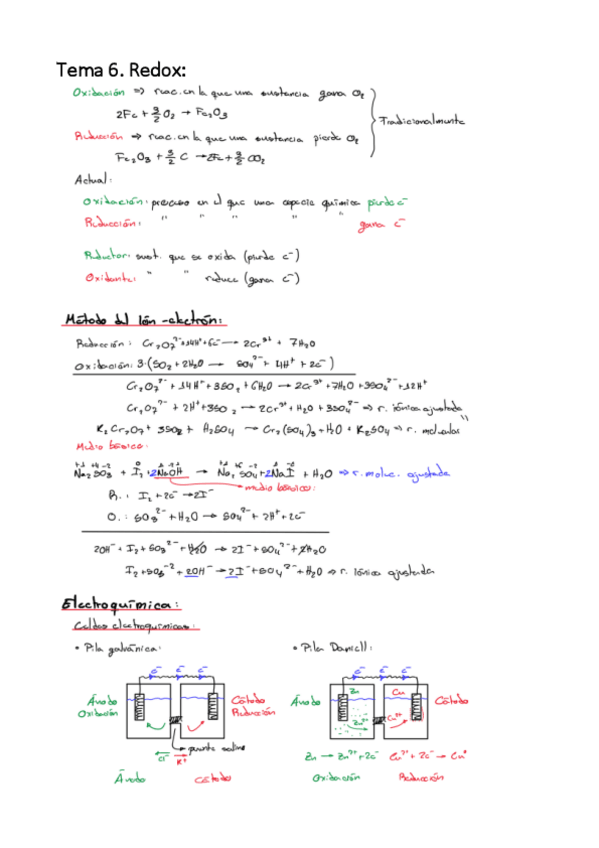 Tema 6. Redox:
Oxidación => reac. en la que una sustancia gana O₂
2Fe + 3/2 O₂ → Fe₂O₃
Tradicionalmente
Reducción => reac. en la que una sustancia pierde O₂
Fe₂O₃ + 3/2 C → 2Fe + 3/2 CO₂
Actual:
Oxidación: proceso en el que una especie química pierde e⁻
Reducción: " " " " " gana e⁻
Reductor: sust. que se oxida (pierde e⁻)
Oxidante: " " reduce (gana e⁻)
Método del Ión-electrón:
Reducción: Cr₂O₇²⁻ + 14H⁺ + 6e⁻ → 2Cr³⁺ + 7H₂O
Oxidación: 3·(SO₂ + 2H₂O → SO₄²⁻ + 4H⁺ + 2e⁻)
Cr₂O₇²⁻ + 14H⁺ + 3SO₂ + 6H₂O → 2Cr³⁺ + 7H₂O + 3SO₄²⁻ + 12H⁺
Cr₂O₇²⁻ + 2H⁺ + 3SO₂ → 2Cr³⁺ + H₂O + 3SO₄²⁻ => r. iónica ajustada
K₂Cr₂O₇ + 3SO₂ + H₂SO₄ → Cr₂(SO₄)₃ + H₂O + K₂SO₄ => r. molecular "
Medio básico:
Na₂SO₃ + I₂ + 2NaOH → Na₂SO₄ + 2NaI + H₂O => r. molec. ajustada
medio básico:
R.: I₂ + 2e⁻ → 2I⁻
O.: SO₃²⁻ + H₂O → SO₄²⁻ + 2H⁺ + 2e⁻
2OH⁻ + I₂ + SO₃²⁻ + H₂O → 2I⁻ + SO₄²⁻ + 2H₂O
I₂ + SO₃⁻² + 2OH⁻ → 2I⁻ + SO₄²⁻ + H₂O => r. iónica ajustada
Electroquímica:
Celdas electroquímicas:
• Pila galvánica: • Pila Daniell:
e⁻ e⁻ e⁻ e⁻ e⁻ e⁻
Ánodo Oxidación Cátodo Reducción
Ánodo Zn Cu Cátodo
Zn²⁺ Cu²⁺
puente salino
Cl⁻ K⁺
Zn → Zn²⁺ + 2e⁻ Cu²⁺ + 2e⁻ → Cu⁰
Ánodo Cátodo Oxidación Reducción